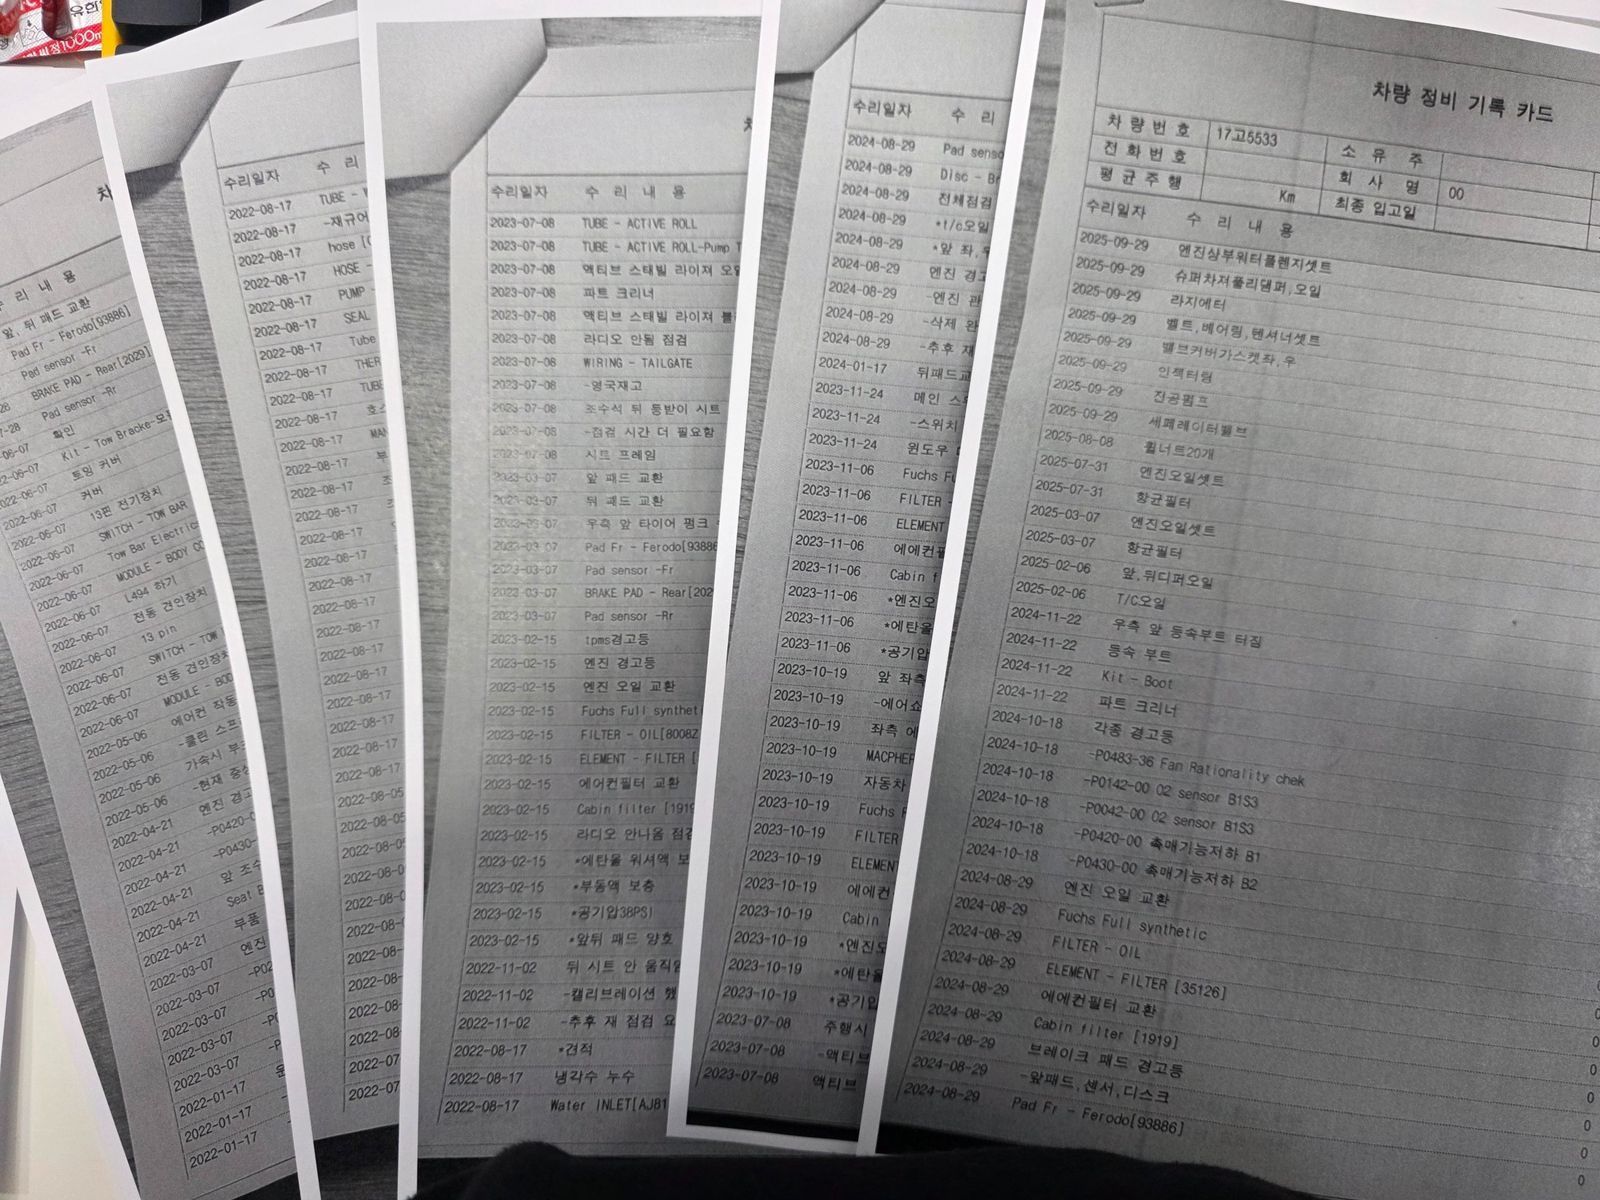 유한
1000m
수 리 내 용
앞, 뒤 패드 교환
Pad Fr - Ferodo[93886]
Pad sensor -Fr
BRAKE PAD - Rear[2029]
Pad sensor -Rr
확인
Kit - Tow Bracke-모
2022-06-07 토잉 커버
2022-06-07 커버
2022-06-07 13핀 전기장치
2022-06-07 SWITCH - TOW BAR
2022-06-07 Tow Bar Electric
2022-06-07 MODULE - BODY CO
2022-06-07 L494 하기
2022-06-07 전동 견인장치
2022-06-07 13 pin
2022-06-07 SWITCH - TOW
2022-06-07 전동 견인장치
2022-06-07 MODULE - BOD
2022-05-06 에어컨 작동
2022-05-06 -클린 스프
2022-05-06 가속시 부
2022-05-06 -현재 증상
2022-04-21 엔진 경고
2022-04-21 -P0420-0
2022-04-21 -P0430-
2022-04-21 앞 조수
2022-04-21 Seat B
2022-04-21 부품
2022-03-07 엔진
2022-03-07 -P02
2022-03-07 -P0
2022-03-07
2022-03-07
2022-01-17
2022-01-17
2022-01-17
수리일자 수 리
2022-08-17 TUBE -
2022-08-17 -재규어
2022-08-17 hose [
2022-08-17 HOSE -
2022-08-17 PUMP
2022-08-17 SEAL
2022-08-17 Tube
2022-08-17 THER
2022-08-17 TUBE
2022-08-17 호스
2022-08-17 MAN
2022-08-17
2022-08-17
2022-08-17
2022-08-17
2022-08-17
2022-08-17
2022-08-17
2022-08-17
2022-08-17
2022-08-17
2022-08-17
2022-08-17
2022-08-17
2022-08-05
2022-08-05
2022-08-0
2022-08-0
2022-08-0
2022-08-
2022-08-
2022-08-
2022-08-
2022-08-
2022-07
2022-07
수리일자 수 리 내 용
2023-07-08 TUBE - ACTIVE ROLL
2023-07-08 TUBE - ACTIVE ROLL-Pump T
2023-07-08 액티브 스태빌 라이져 오일
2023-07-08 파트 크리너
2023-07-08 액티브 스태빌 라이져 블
2023-07-08 라디오 안됨 점검
2023-07-08 WIRING - TAILGATE
2023-07-08 -영국재고
2023-07-08 조수석 뒤 등받이 시트
2023-07-08 -점검 시간 더 필요함
2023-07-08 시트 프레임
2023-03-07 앞 패드 교환
2023-03-07 뒤 패드 교환
2023-03-07 우측 앞 타이어 펑크
2023-03-07 Pad Fr - Ferodo[93886
2023-03-07 Pad sensor -Fr
2023-03-07 BRAKE PAD - Rear[202
2023-03-07 Pad sensor -Rr
2023-02-15 tpms경고등
2023-02-15 엔진 경고등
2023-02-15 엔진 오일 교환
2023-02-15 Fuchs Full synthet
2023-02-15 FILTER - OIL[8008Z
2023-02-15 ELEMENT - FILTER [
2023-02-15 에어컨필터 교환
2023-02-15 Cabin filter [191
2023-02-15 라디오 안나옴 점검
2023-02-15 *에탄올 워셔액 보
2023-02-15 *부동액 보충
2023-02-15 *공기압38PSI
2023-02-15 *앞뒤 패드 양호
2022-11-02 뒤 시트 안 움직임
2022-11-02 -캘리브레이션 했
2022-11-02 -추후 재 점검 요
2022-08-17 *견적
2022-08-17 냉각수 누수
2022-08-17 Water INLET[AJ81
수리일자 수 리
2024-08-29 Pad senso
2024-08-29 Disc - Br
2024-08-29 전체점검
2024-08-29 *t/c오일
2024-08-29 *앞 좌,우
2024-08-29 엔진 경고
2024-08-29 -엔진 관
2024-08-29 -삭제 완
2024-08-29 -추후 재
2024-01-17 뒤패드교
2023-11-24 메인 스
2023-11-24 -스위치
2023-11-24 윈도우
2023-11-06 Fuchs Fu
2023-11-06 FILTER -
2023-11-06 ELEMENT
2023-11-06 에에컨필
2023-11-06 Cabin f
2023-11-06 *엔진오
2023-11-06 *에탄올
2023-11-06 *공기압
2023-10-19 앞 좌측
2023-10-19 -에어쇼
2023-10-19 좌측 에
2023-10-19 MACPHER
2023-10-19 자동차
2023-10-19 Fuchs F
2023-10-19 FILTER
2023-10-19 ELEMEN
2023-10-19 에에컨
2023-10-19 Cabin
2023-10-19 *엔진오
2023-10-19 *에탄올
2023-10-19 *공기압
2023-07-08 주행시
2023-07-08 -액티브
2023-07-08 액티브
차량 정비 기록 카드
차 량 번 호 17고5533 소 유 주
전 화 번 호 회 사 명 00
평 균 주 행 Km 최종 입고일
수리일자 수 리 내 용
2025-09-29 엔진상부워터플렌지셋트
2025-09-29 슈퍼차져풀리댐퍼,오일
2025-09-29 라지에터
2025-09-29 벨트,베어링,텐셔너셋트
2025-09-29 밸브커버가스켓좌,우
2025-09-29 인젝터링
2025-09-29 진공펌프
2025-09-29 세페레이터밸브
2025-08-08 휠너트20개
2025-07-31 엔진오일셋트
2025-07-31 항균필터
2025-03-07 엔진오일셋트
2025-03-07 항균필터
2025-02-06 앞,뒤디퍼오일
2025-02-06 T/C오일
2024-11-22 우측 앞 등속부트 터짐
2024-11-22 등속 부트
2024-11-22 Kit - Boot
2024-11-22 파트 크리너
2024-10-18 각종 경고등
2024-10-18 -P0483-36 Fan Rationality chek
2024-10-18 -P0142-00 02 sensor B1S3
2024-10-18 -P0042-00 02 sensor B1S3
2024-10-18 -P0420-00 촉매기능저하 B1
2024-10-18 -P0430-00 촉매기능저하 B2
2024-08-29 엔진 오일 교환
2024-08-29 Fuchs Full synthetic
2024-08-29 FILTER - OIL
2024-08-29 ELEMENT - FILTER [35126]
2024-08-29 에에컨필터 교환
2024-08-29 Cabin filter [1919]
2024-08-29 브레이크 패드 경고등
2024-08-29 -앞패드,센서,디스크
2024-08-29 Pad Fr - Ferodo[93886]